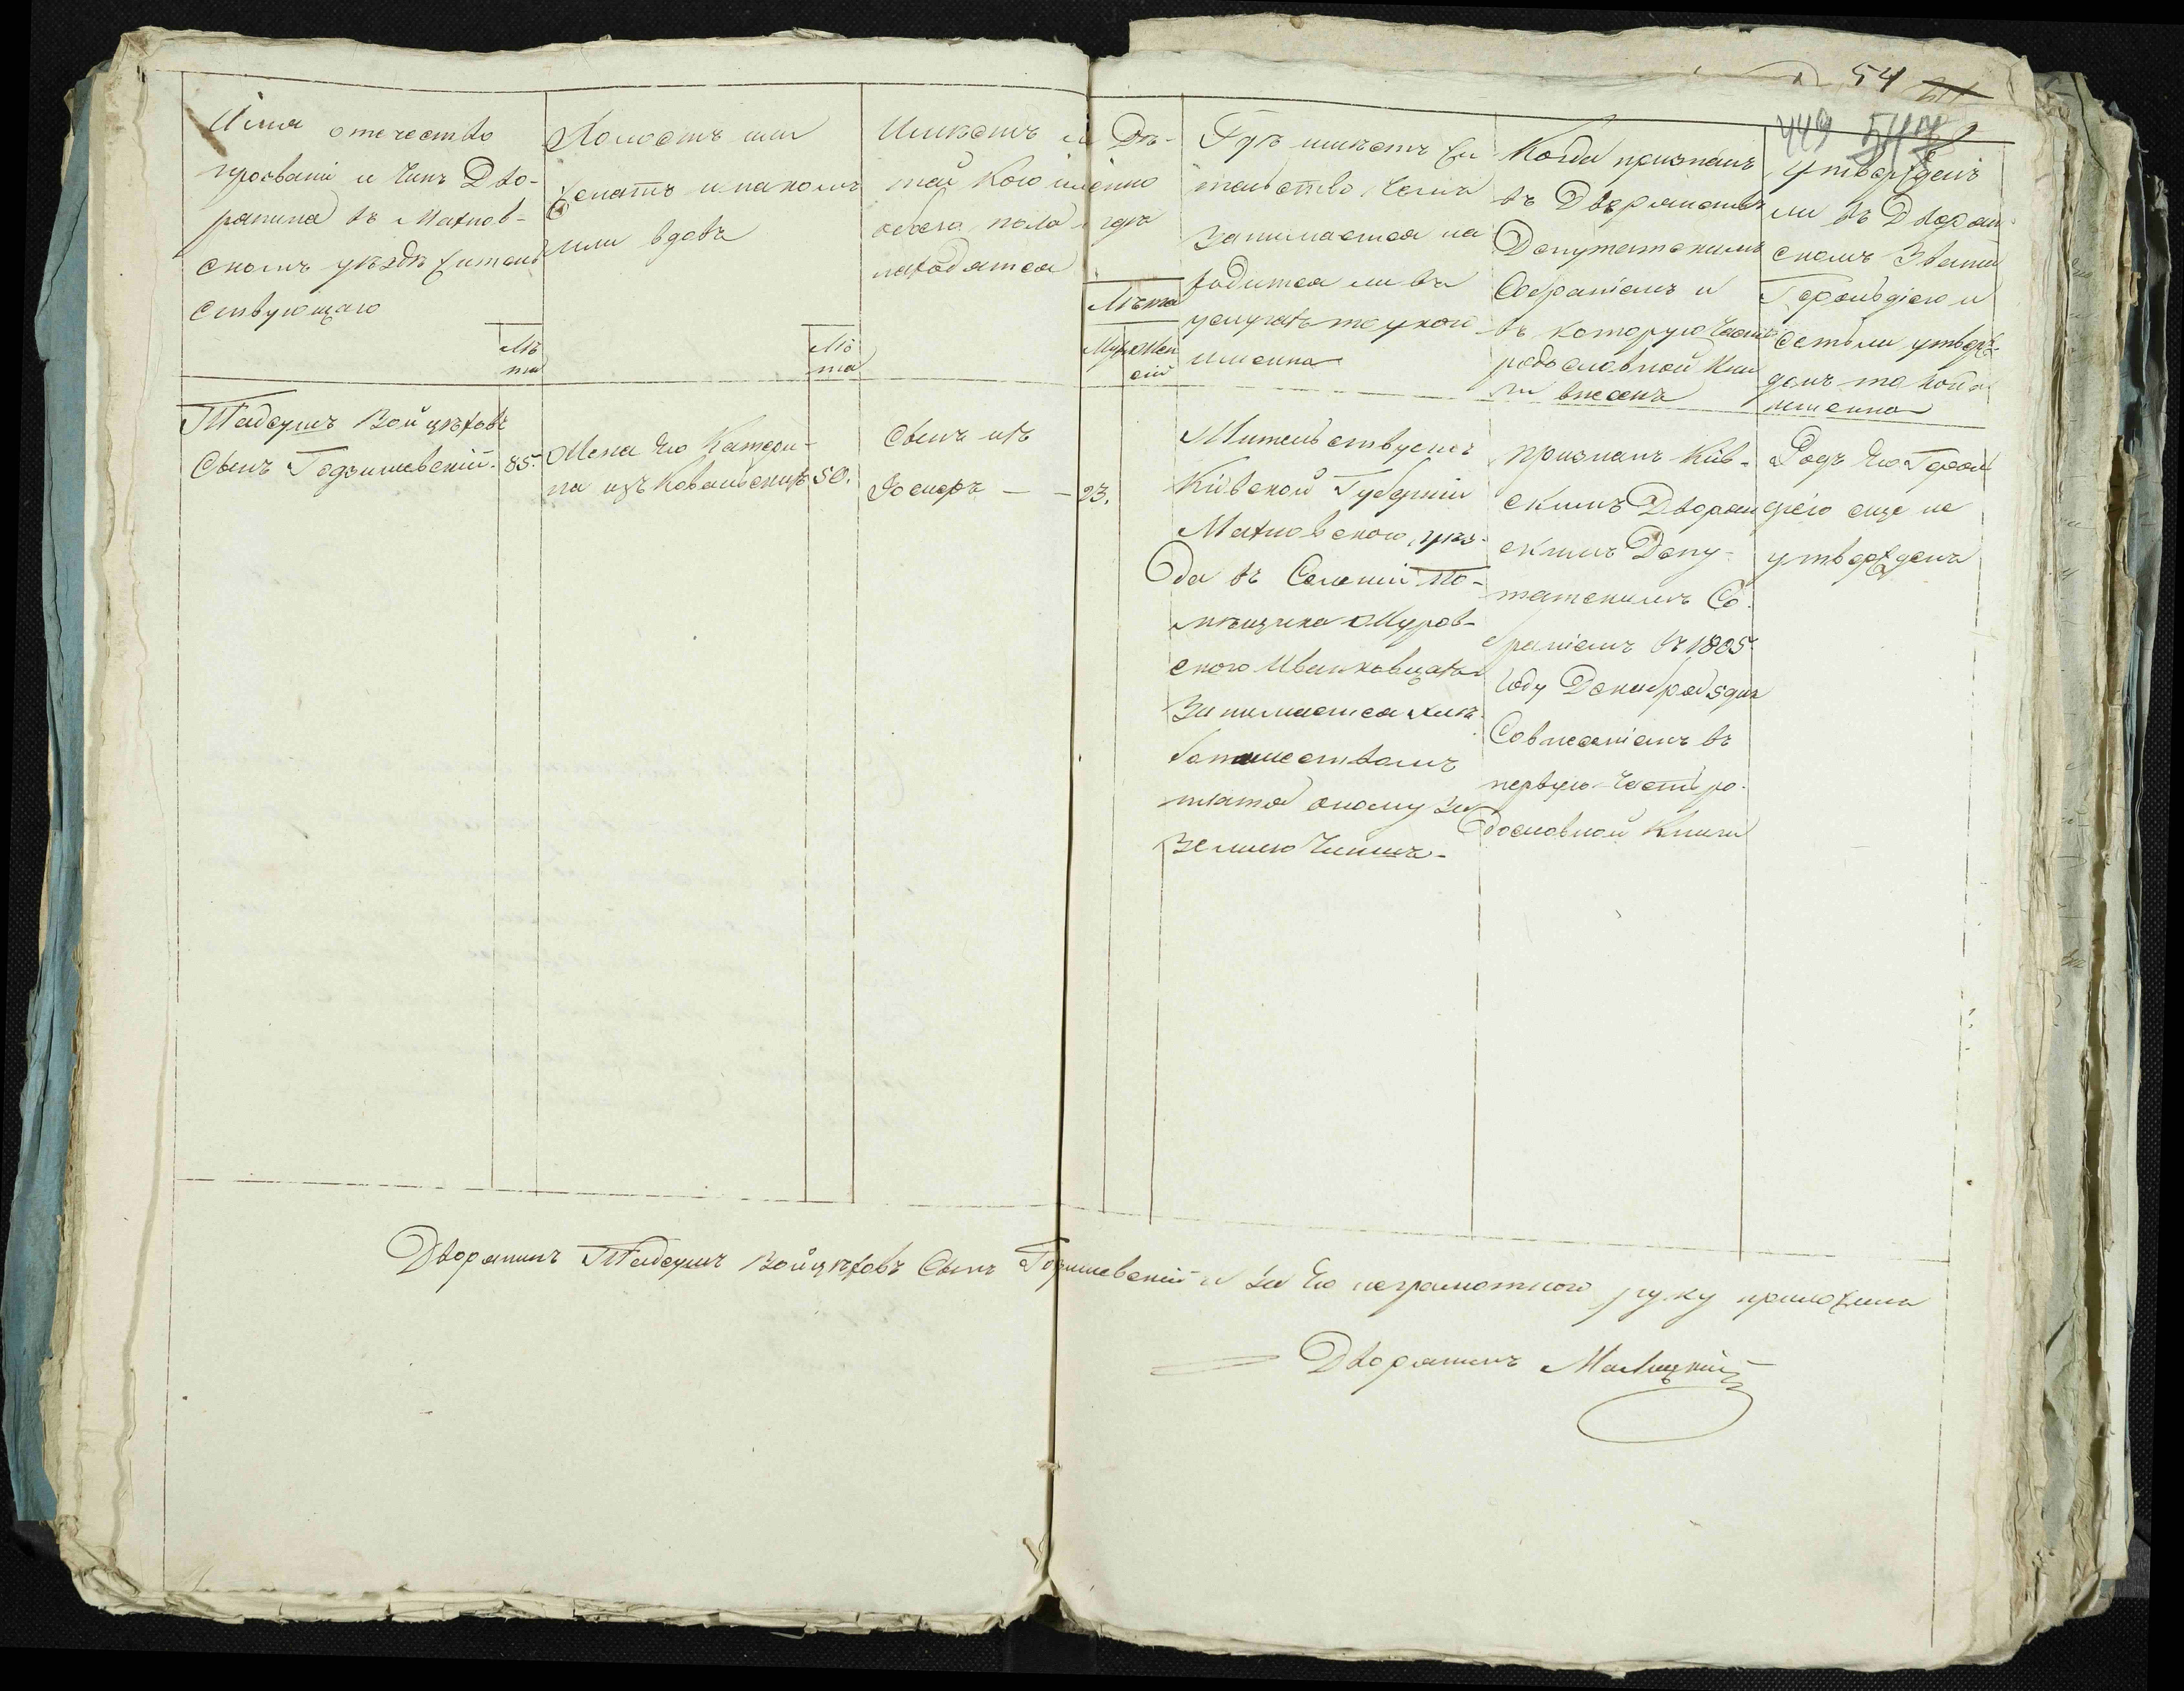 54
449
Имя отечество
прозваніи и Чинъ Дво-
рянина въ Махнов-
скомъ уѣздѣ житель
ствующаго
Лѣ
та
Холостъ или
женатъ и на комъ
или вдовъ
Лѣ
та
Имѣетъ ли Дѣ-
тей кого именно
обоего пола и гдѣ
находятся
Лѣта
Муж Жен
скій
Гдѣ имѣетъ жи
тельство, чемъ
занимается на
ходится ли въ
услугахъ то у кого
именно
Когда признанъ
въ Дворянствѣ
Депутатскимъ
Собраніемъ и
въ которую Часть
родословной Кни
ги внесенъ
Утвержденъ
ли въ Дворян
скомъ Званіи
Герольдіею и
естьли утверж
денъ то когда
именно
Тадеушъ Войцѣховъ
Сынъ Годзишевскій. 85.
Жена его Катери-
на изъ Ковальскихъ 50.
Сынъ ихъ
Іосифъ — — 23.
Жительствуетъ
Кіевской Губерніи
Махновского уѣз-
да въ Селеніи По-
мѣщика Журов-
ского Иванковцахъ
Занимается хлѣ-
бопашествомъ
платя оному за
землю Чиншъ-
признанъ Кіев-
скимъ Дворян
скимъ Депу-
татскимъ Со-
браніемъ въ 1805
году Декабря 5 дня
Совнесеніемъ въ
первую Часть ро-
дословной Книги
Родъ его Героль
діею еще не
утвержденъ
Дворянинъ Тадеушъ Войцѣховъ Сынъ Годзишевскій а за Его неграмотного руку приложилъ
Дворянинъ